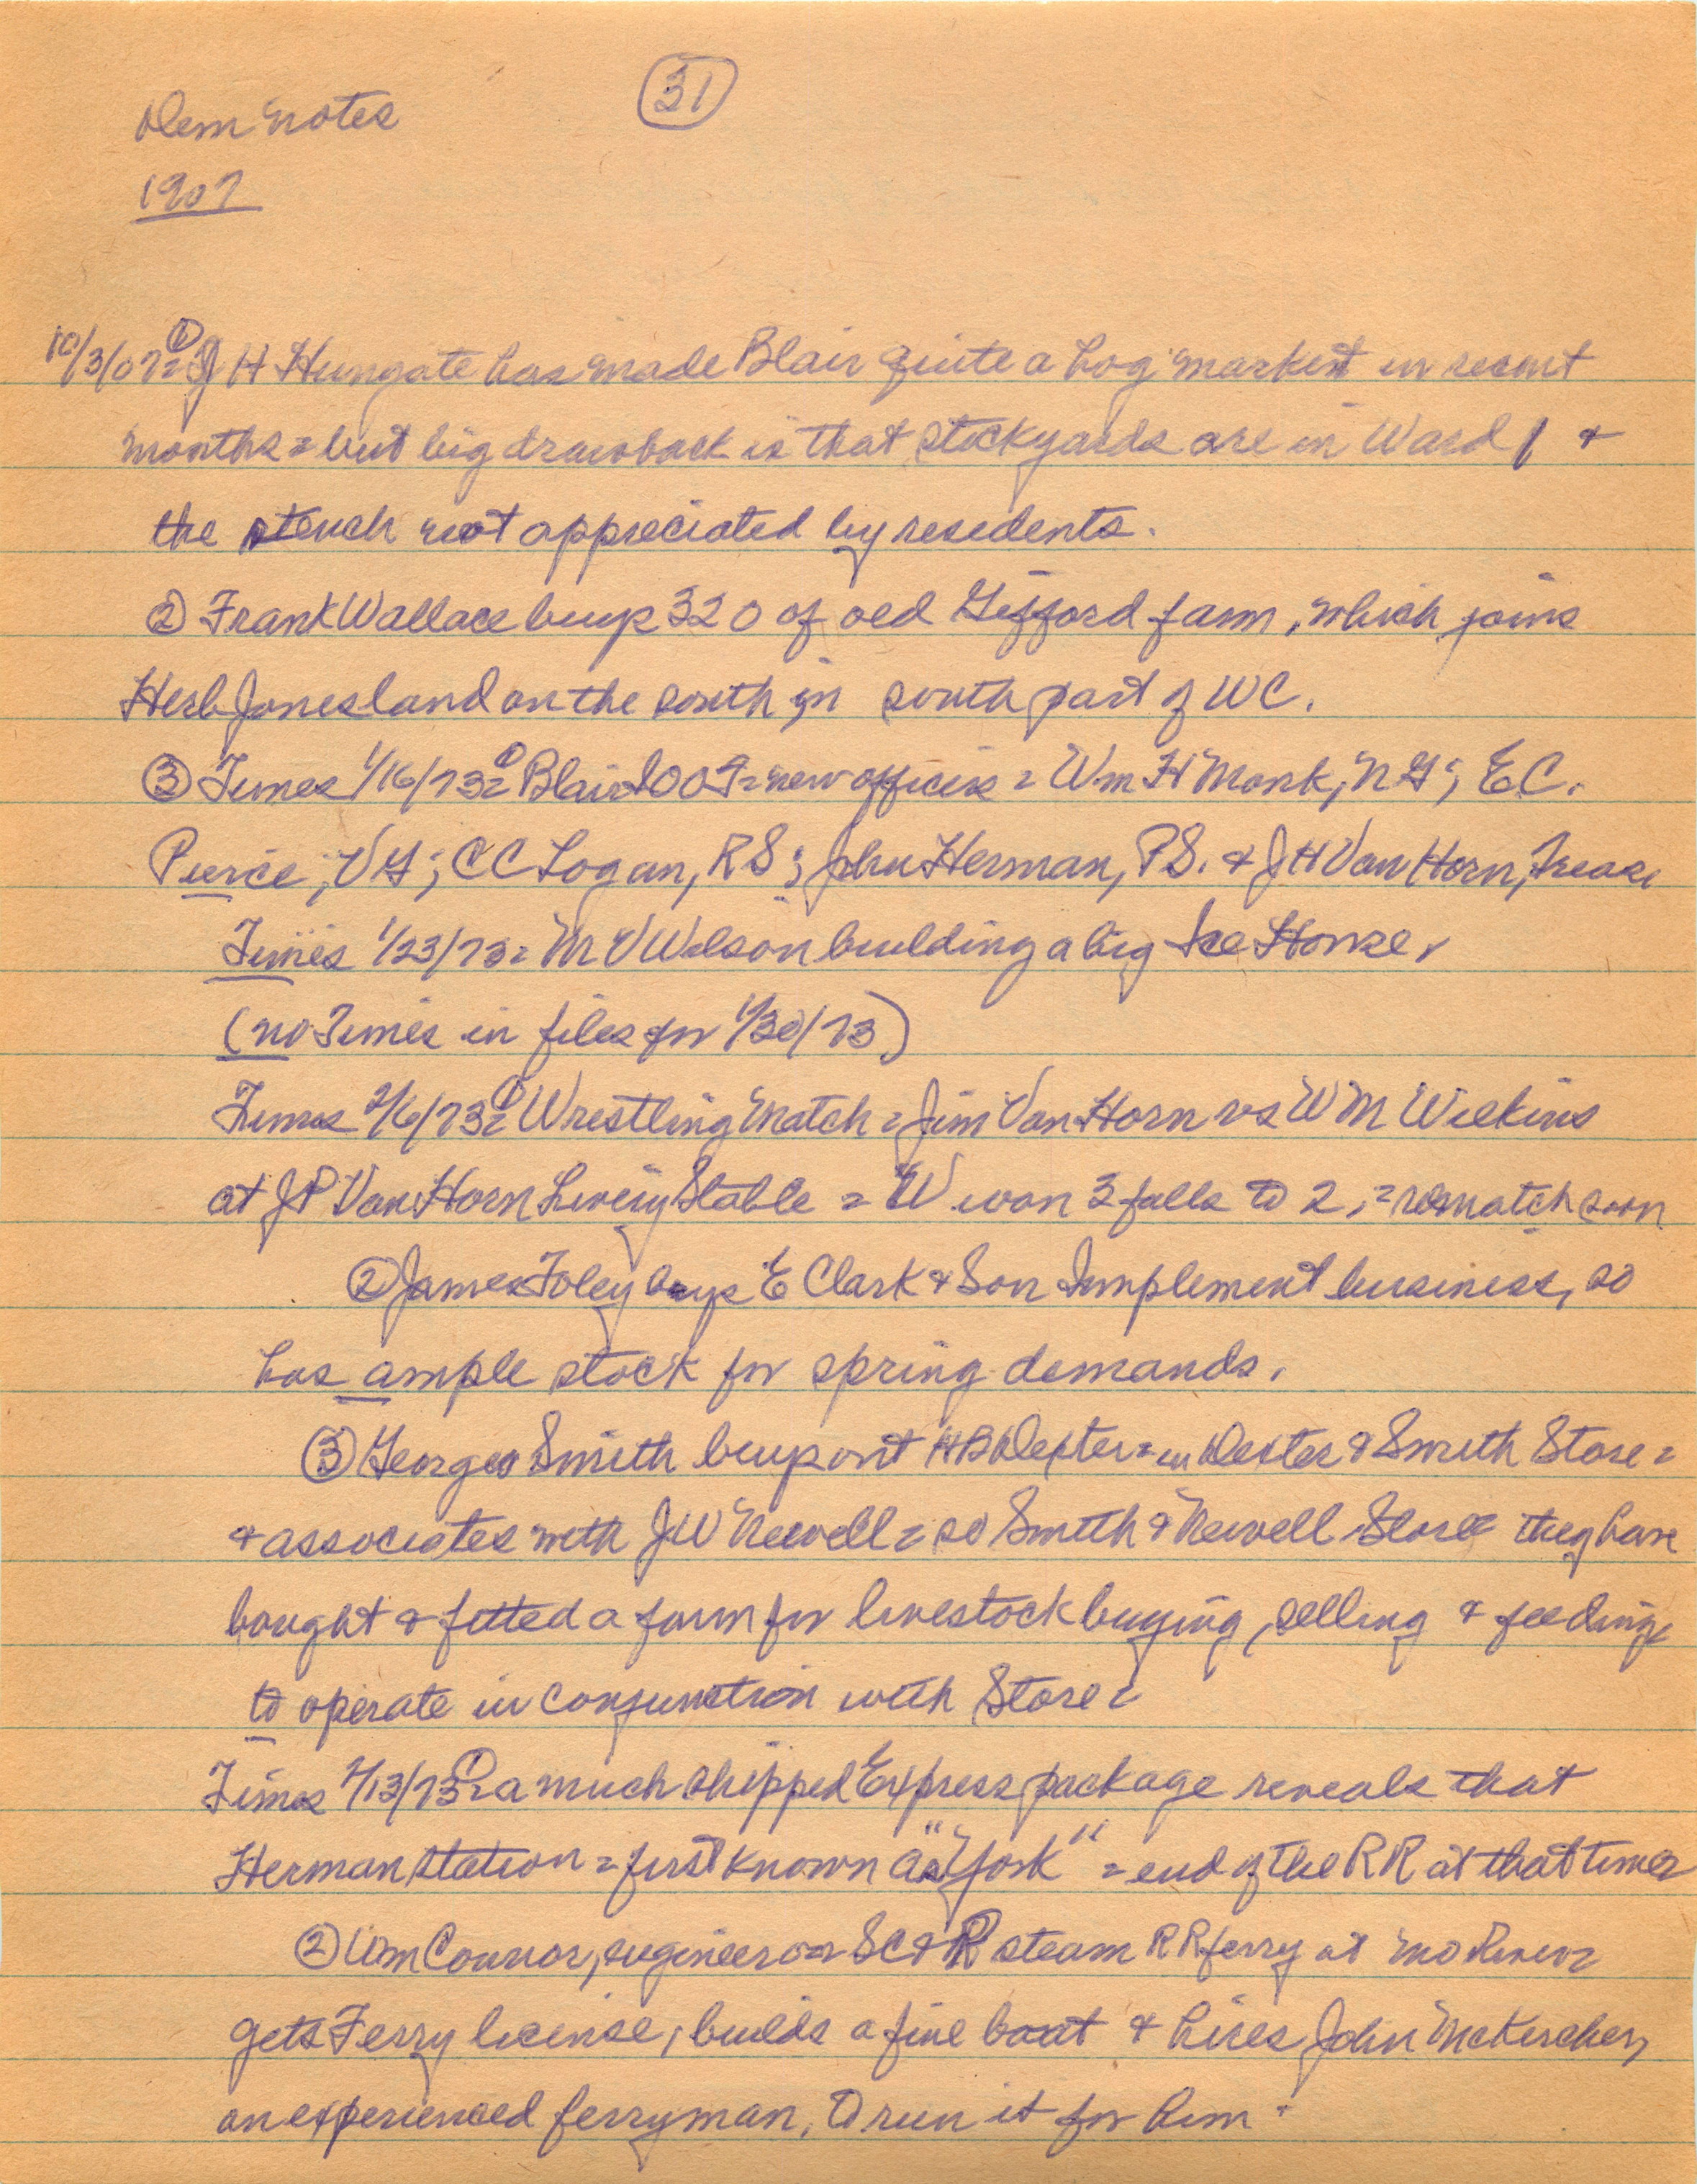 31
Dem Notes
1907
10/3/07= ① J H Hungate has made Blair quite a hog market in recent
months = but big drawback is that stockyards are in Ward 1 &
the stench not appreciated by residents.
② Frank Wallace buys 320 of old Gifford farm, which joins
Herb Jones land on the south in south part of WC.
③ Times 1/16/73= ① Blair IOOF = new officers = Wm H Monk, NG; E C.
Pierce, VG; C C Logan, RS; John Herman, PS. & J H Van Horn, Treas
Times 1/23/73= M V Wilson building a big Ice House.
(no Times in files for 1/30/73)
Times 2/6/73= ① Wrestling Match = Jim Van Horn vs W M Wilkins
at J P Van Horn Livery Stable = W won 3 falls to 2, = rematch soon
② James Foley buys E Clark & Son Implement business, so
has ample stock for spring demands.
③ George Smith buys out H B Dexter = in Dexter & Smith Store =
& associates with J W Newell = so Smith & Newell Store they have
bought & fitted a farm for livestock buying, selling & feeding
to operate in conjunction with Store=
Times 2/13/73= ① a much shipped Express package reveals that
Herman Station = first known as "York" = end of the RR at that time=
② Wm Connor, engineer on SC & P steam RR ferry at Mo River
gets Ferry license, builds a fine boat & hires John McKercher,
an experienced ferryman, to run it for him.